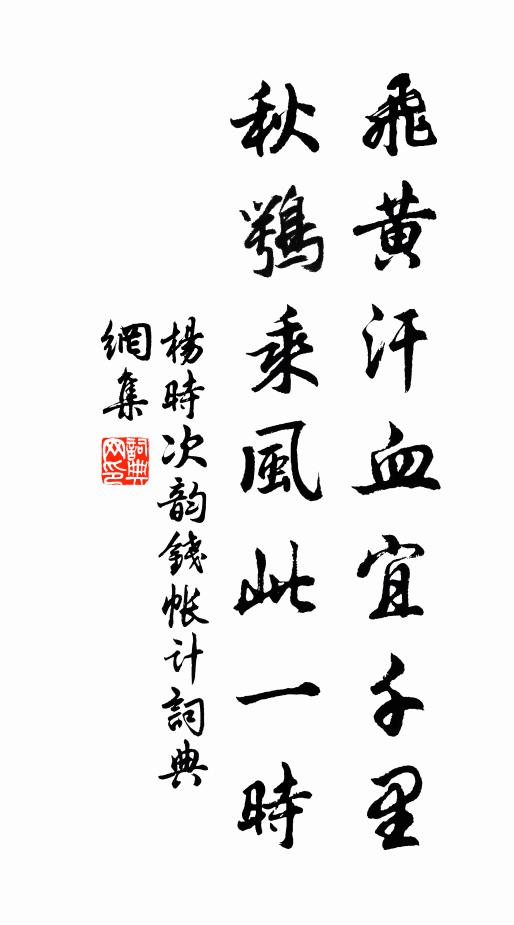 飛黄汗血宜千里
秋鶚乘風此一時
楊時次韵錢帐计詞典
網集
詞典网印